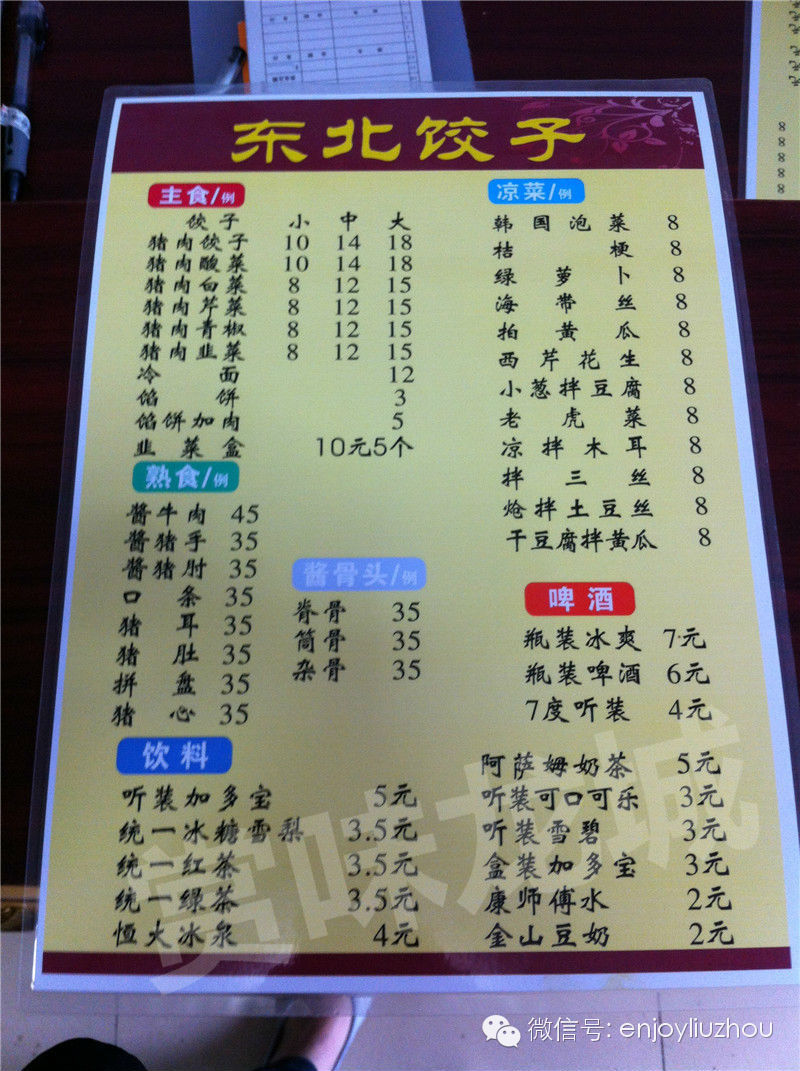 东北饺子
主食/例
饺子 小 中 大
猪肉饺子 10 14 18
猪肉酸菜 10 14 18
猪肉白菜 8 12 15
猪肉芹菜 8 12 15
猪肉青椒 8 12 15
猪肉韭菜 8 12 15
冷面 12
馅饼 3
馅饼加肉 5
韭菜盒 10元5个
熟食/例
酱牛肉 45
酱猪手 35
酱猪肘 35
口条 35
猪耳 35
猪肚 35
拼盘 35
猪心 35
酱骨头/例
脊骨 35
筒骨 35
杂骨 35
凉菜/例
韩国泡菜 8
桔梗 8
绿萝卜 8
海带丝 8
拍黄瓜 8
西芹花生 8
小葱拌豆腐 8
老虎菜 8
凉拌木耳 8
拌三丝 8
炝拌土豆丝 8
干豆腐拌黄瓜 8
啤酒
瓶装冰爽 7元
瓶装啤酒 6元
7度听装 4元
饮料
听装加多宝 5元
统一冰糖雪梨 3.5元
统一红茶 3.5元
统一绿茶 3.5元
恒大冰泉 4元
阿萨姆奶茶 5元
听装可口可乐 3元
听装雪碧 3元
盒装加多宝 3元
康师傅水 2元
金山豆奶 2元
赏味龙城
微信号: enjoyliuzhou